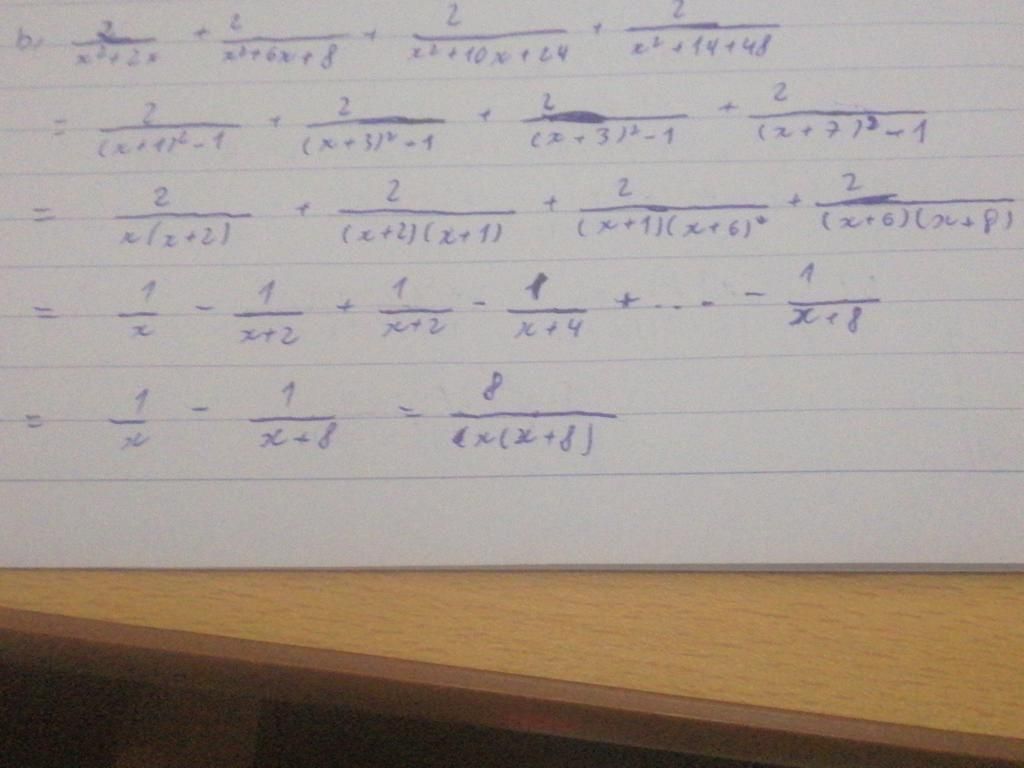 b. 2/(x²+2x) + 2/(x²+6x+8) + 2/(x²+10x+24) + 2/(x²+14+48)
= 2/((x+1)²-1) + 2/((x+3)²-1) + 2/((x+3)²-1) + 2/((x+7)²-1)
= 2/(x(x+2)) + 2/((x+2)(x+1)) + 2/((x+1)(x+6)) + 2/((x+6)(x+8))
= 1/x - 1/(x+2) + 1/(x+2) - 1/(x+4) + ... - 1/(x+8)
= 1/x - 1/(x+8) = 8/(x(x+8))